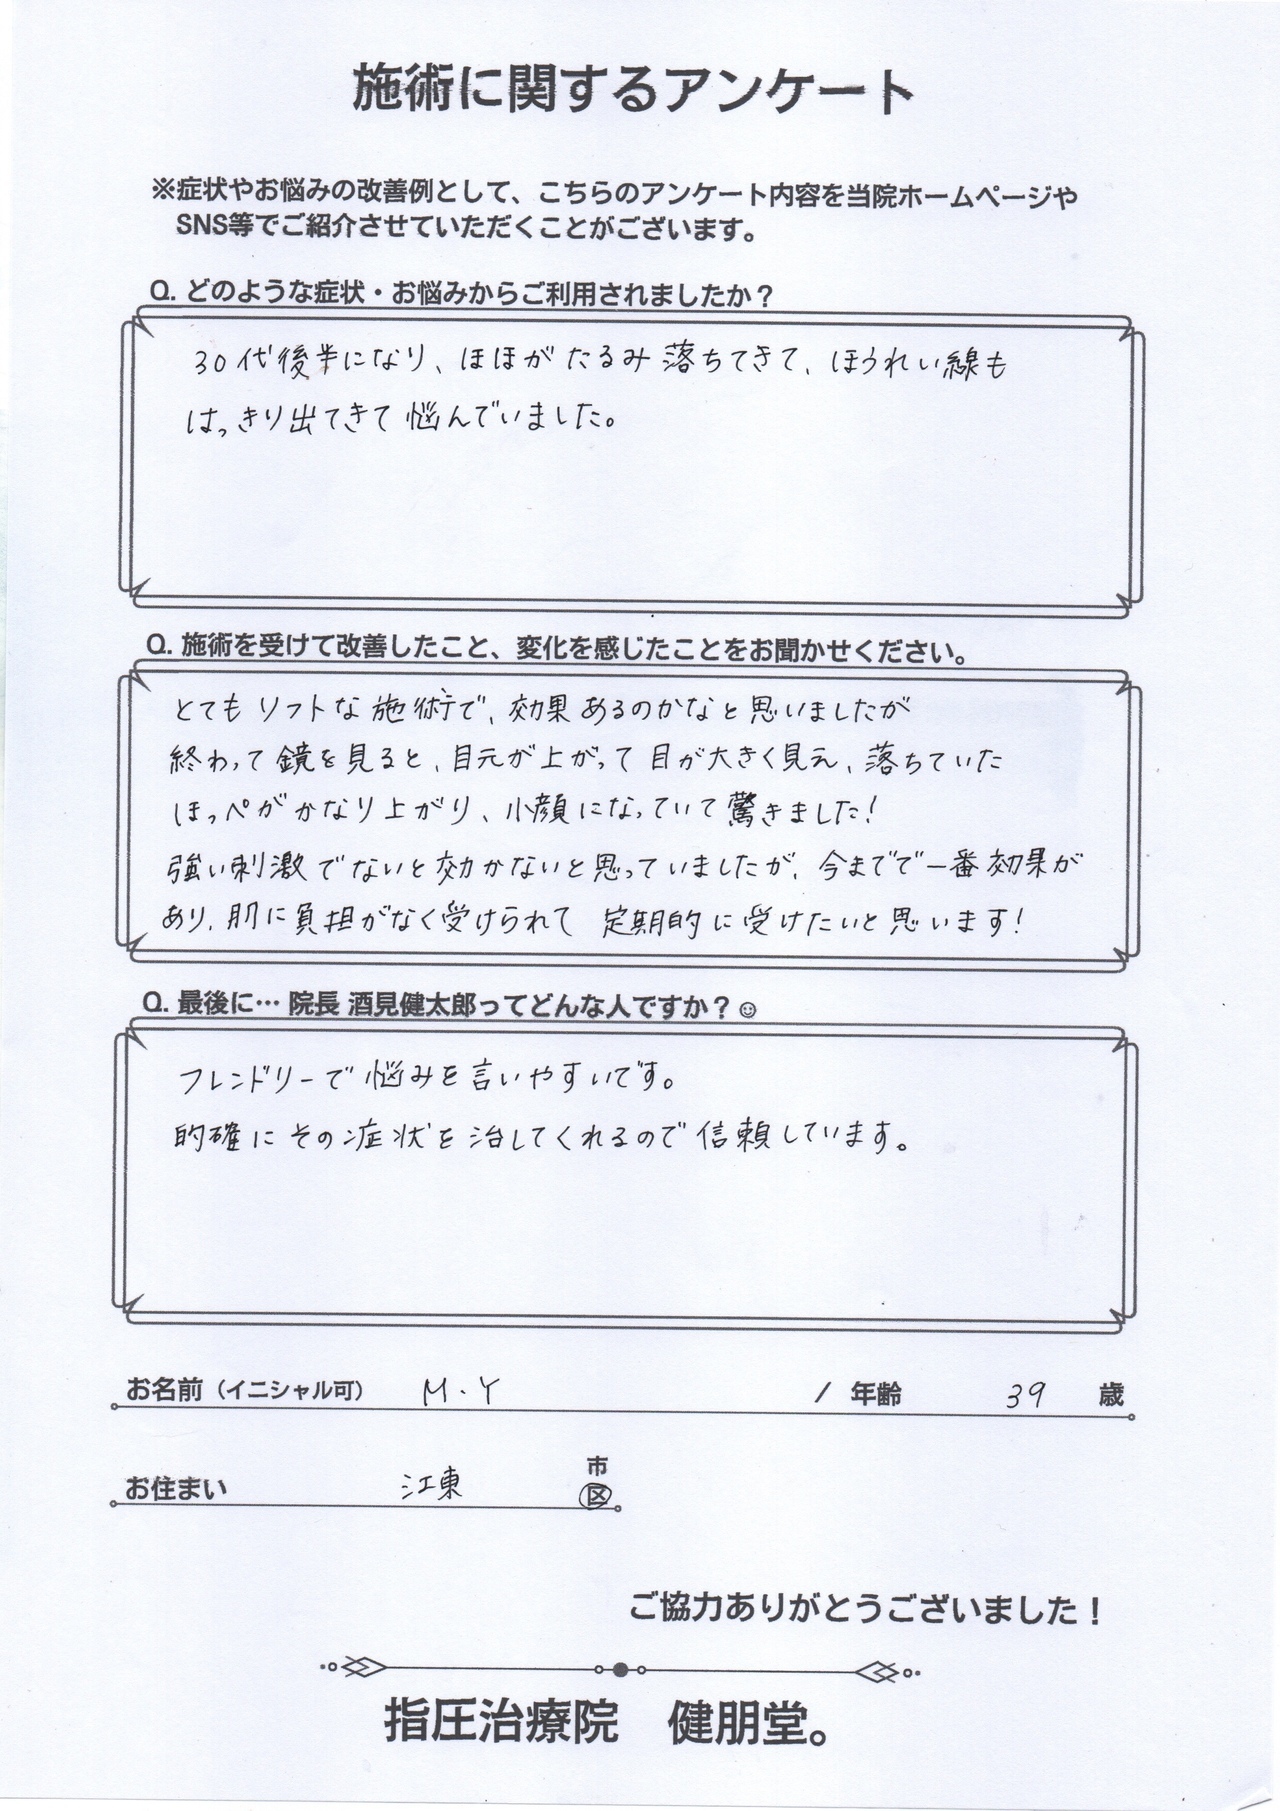 施術に関するアンケート
※症状やお悩みの改善例として、こちらのアンケート内容を当院ホームページや
SNS等でご紹介させていただくことがございます。
Q. どのような症状・お悩みからご利用されましたか？
30代後半になり、ほほがたるみ落ちてきて、ほうれい線も
はっきり出てきて悩んでいました。
Q. 施術を受けて改善したこと、変化を感じたことをお聞かせください。
とてもソフトな施術で、効果あるのかなと思いましたが
終わって鏡を見ると、目元が上がって目が大きく見え、落ちていた
ほっぺがかなり上がり、小顔になっていて驚きました！
強い刺激でないと効かないと思っていましたが、今までで一番効果が
あり、肌に負担がなく受けられて 定期的に受けたいと思います！
Q. 最後に… 院長 酒見健太郎ってどんな人ですか？☺
フレンドリーで悩みを言いやすいです。
的確にその症状を治してくれるので信頼しています。
お名前（イニシャル可） M・Y / 年齢 39 歳
市
お住まい 江東 区
ご協力ありがとうございました！
指圧治療院 健朋堂。